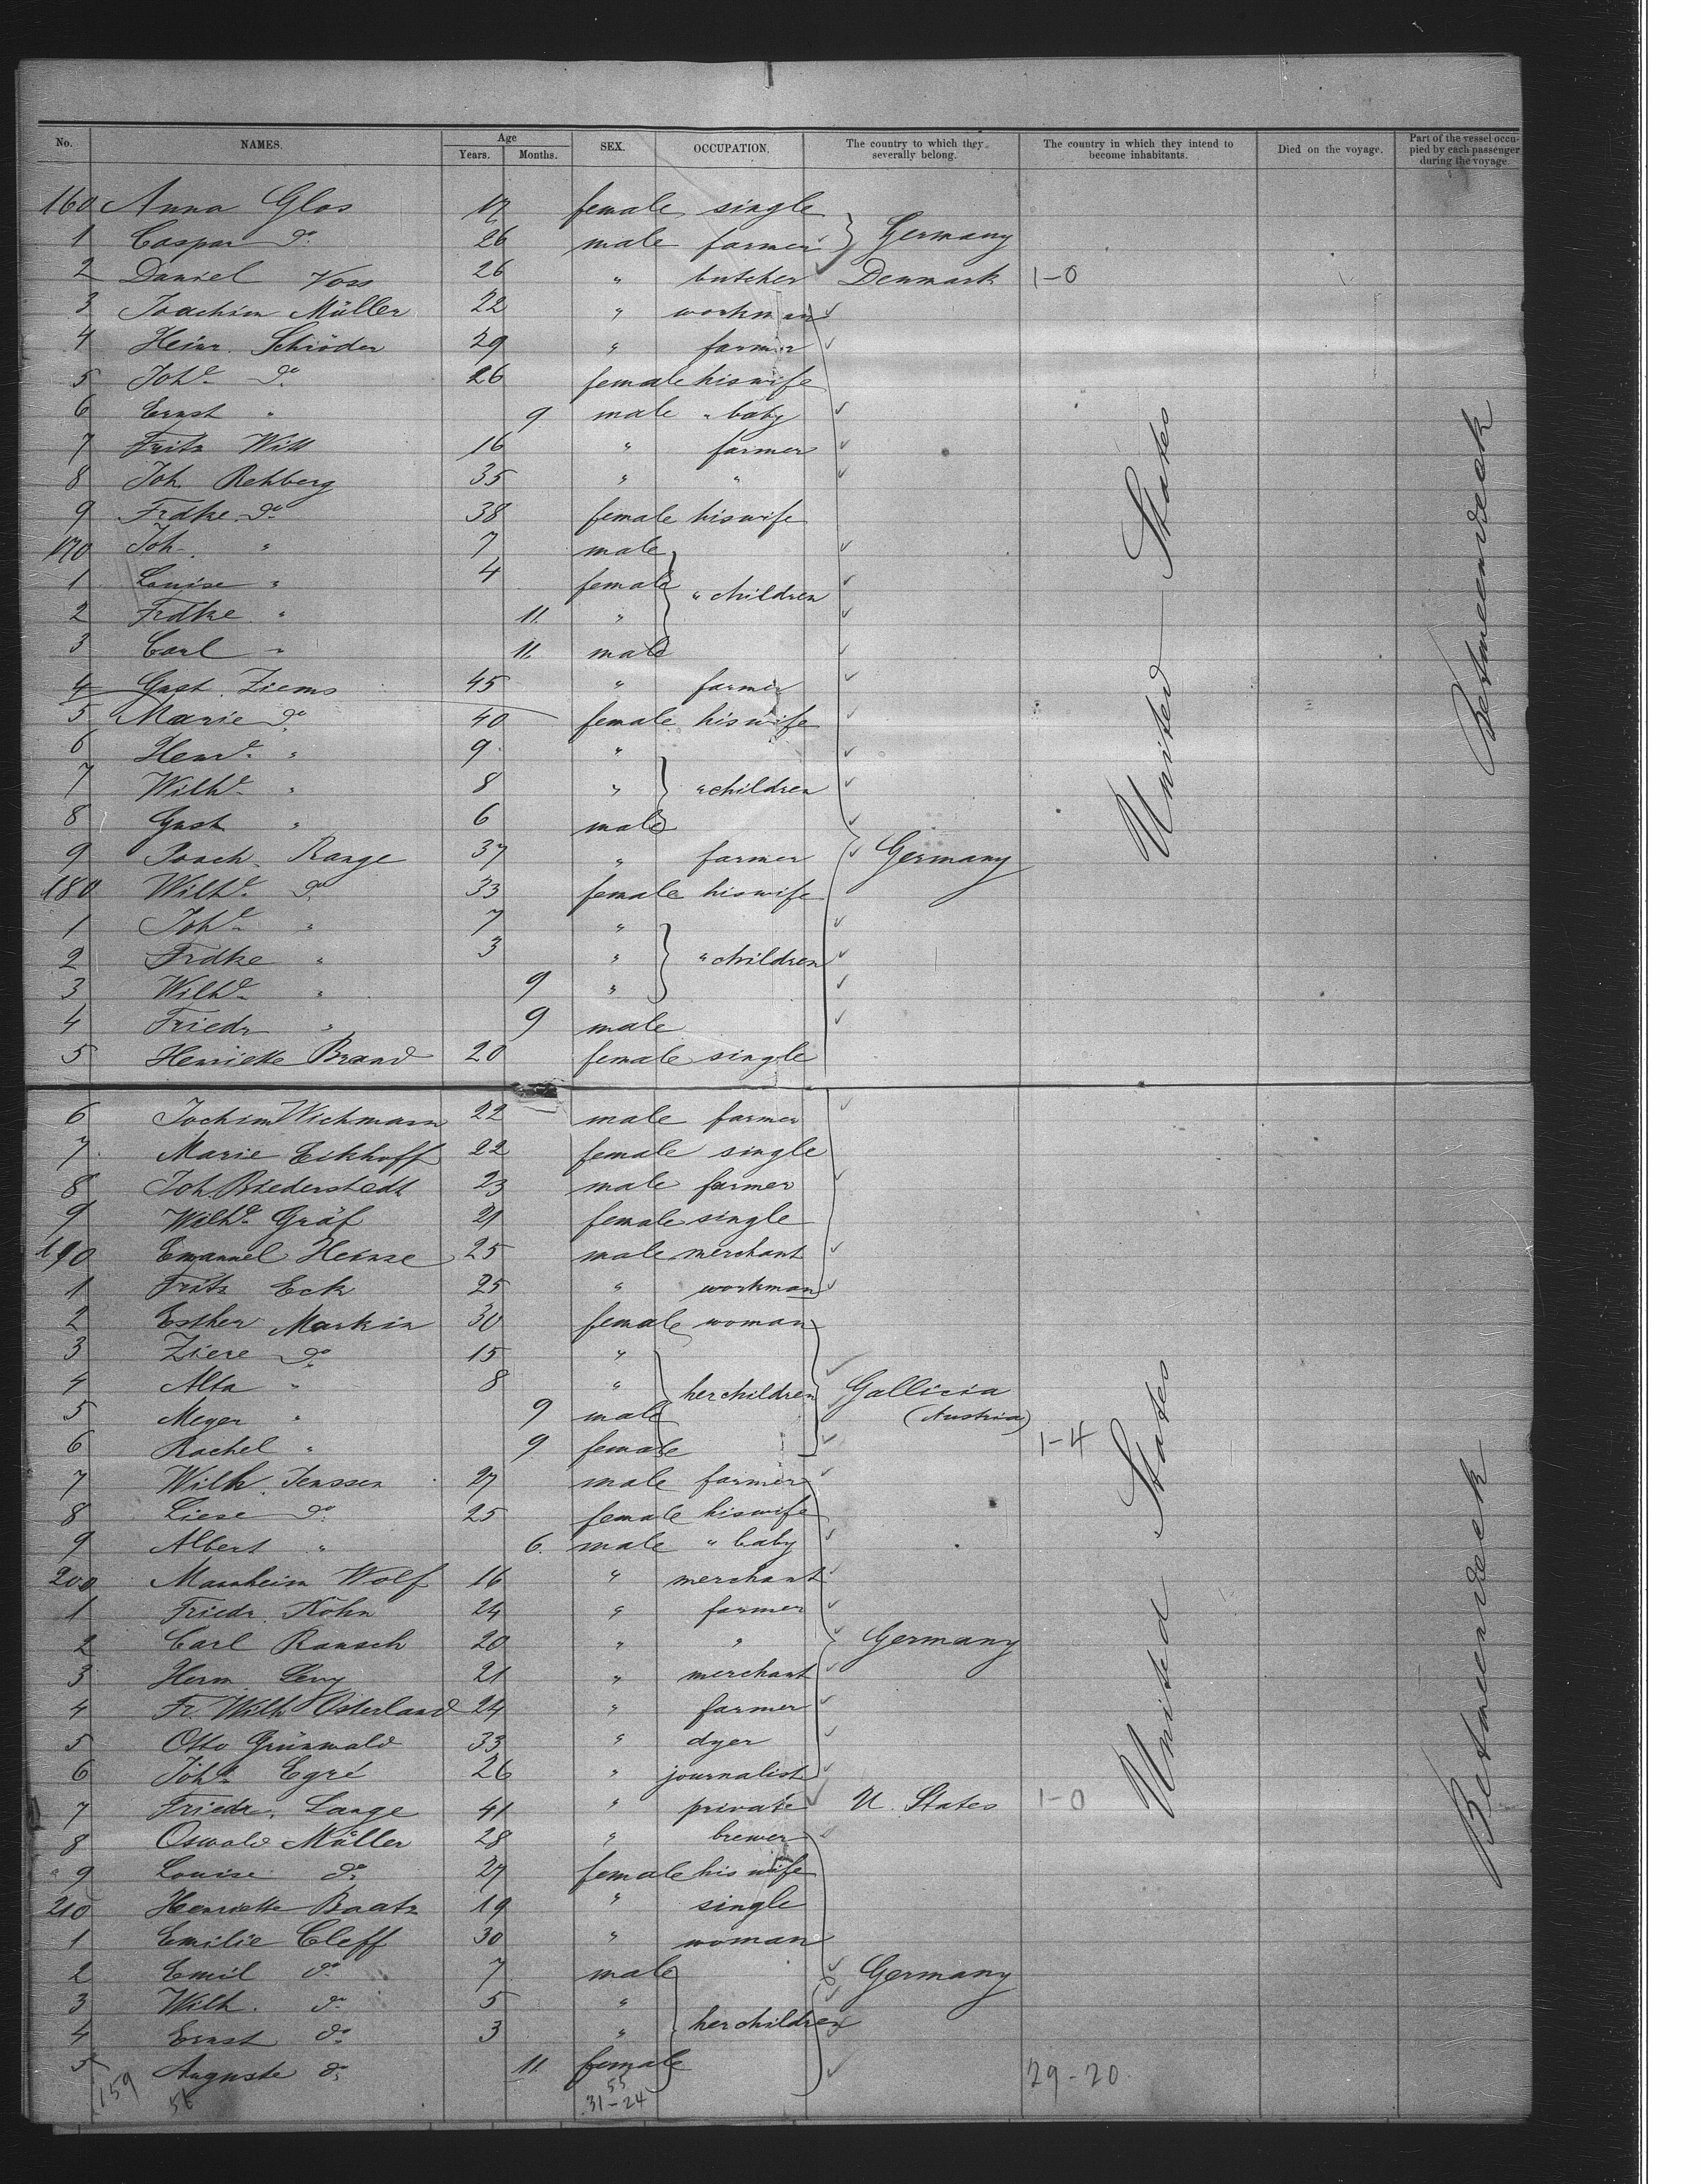 No. NAMES. Age Years. Months. SEX. OCCUPATION. The country to which they severally belong. The country in which they intend to become inhabitants. Died on the voyage. Part of the vessel occupied by each passenger during the voyage
160 Anna Glas 17 female single
1 Caspar do 26 male farmer } Germany
2 Daniel Voss 26 " butcher Denmark 1-0
3 Joachim Müller 22 " workman
4 Heinr. Schröder 29 " farmer
5 Johe do 26 female his wife
6 Ernst " 9 male " baby
7 Fritz Witt 16 " farmer
8 Joh. Rehberg 35 " "
9 Frdke do 38 female his wife
170 Joh. " 7 male
1 Louise " 4 female " children
2 Frdke " 11. "
3 Carl " 11. male
4 Gust. Ziems 45 " farmer
5 Marie do 40 female his wife
6 Henre " 9 "
7 Wilhe " 8 " " children
8 Gust " 6 male
9 Joach. Range 37 " farmer Germany
180 Wilhe do 33 female his wife
1 Johe " 7 "
2 Frdke " 3 " " children
3 Wilhe " 9 "
4 Friedr " 9 male
5 Henriette Brand 20 female single
United States
Betweendeck
6 Jochim Wichmann 22 male farmer
7 Marie Eikhoff 22 female single
8 Joh. Biederstedt 23 male farmer
9 Wilhe Gräf 21 female single
190 Emanuel Heinse 25 male merchant
1 Fritz Eck 25 " workman
2 Esther Markin 30 female woman
3 Ziere do 15 "
4 Alta " 8 " her children Gallicia
5 Meyer " 9 male (Austria)
6 Rachel " 9 female 1-4
7 Wilh. Jenssen 27 male farmer
8 Liese do 25 female his wife
9 Albert " 6. male " baby
200 Mannheim Wolf 16 " merchant
1 Friedr. Köhn 24 " farmer
2 Carl Rausch 20 " " Germany
3 Herm. Levy 21 " merchant
4 Fr. Wilh Osterland 24 " farmer
5 Otto Grünwald 33 " dyer
6 Johs Egré 26 " journalist
7 Friedr. Lange 41 " private U. States 1-0
8 Oswald Müller 28 " brewer
9 Louise do 27 female his wife
210 Henriette Baatz 19 " single
1 Emilie Cleff 30 " woman
2 Emil do 7 male Germany
3 Wilh. do 5 "
4 Ernst do 3 " her children
5 Auguste do 11. female 29-20
United States
Betweendeck
159
56
55
31-24